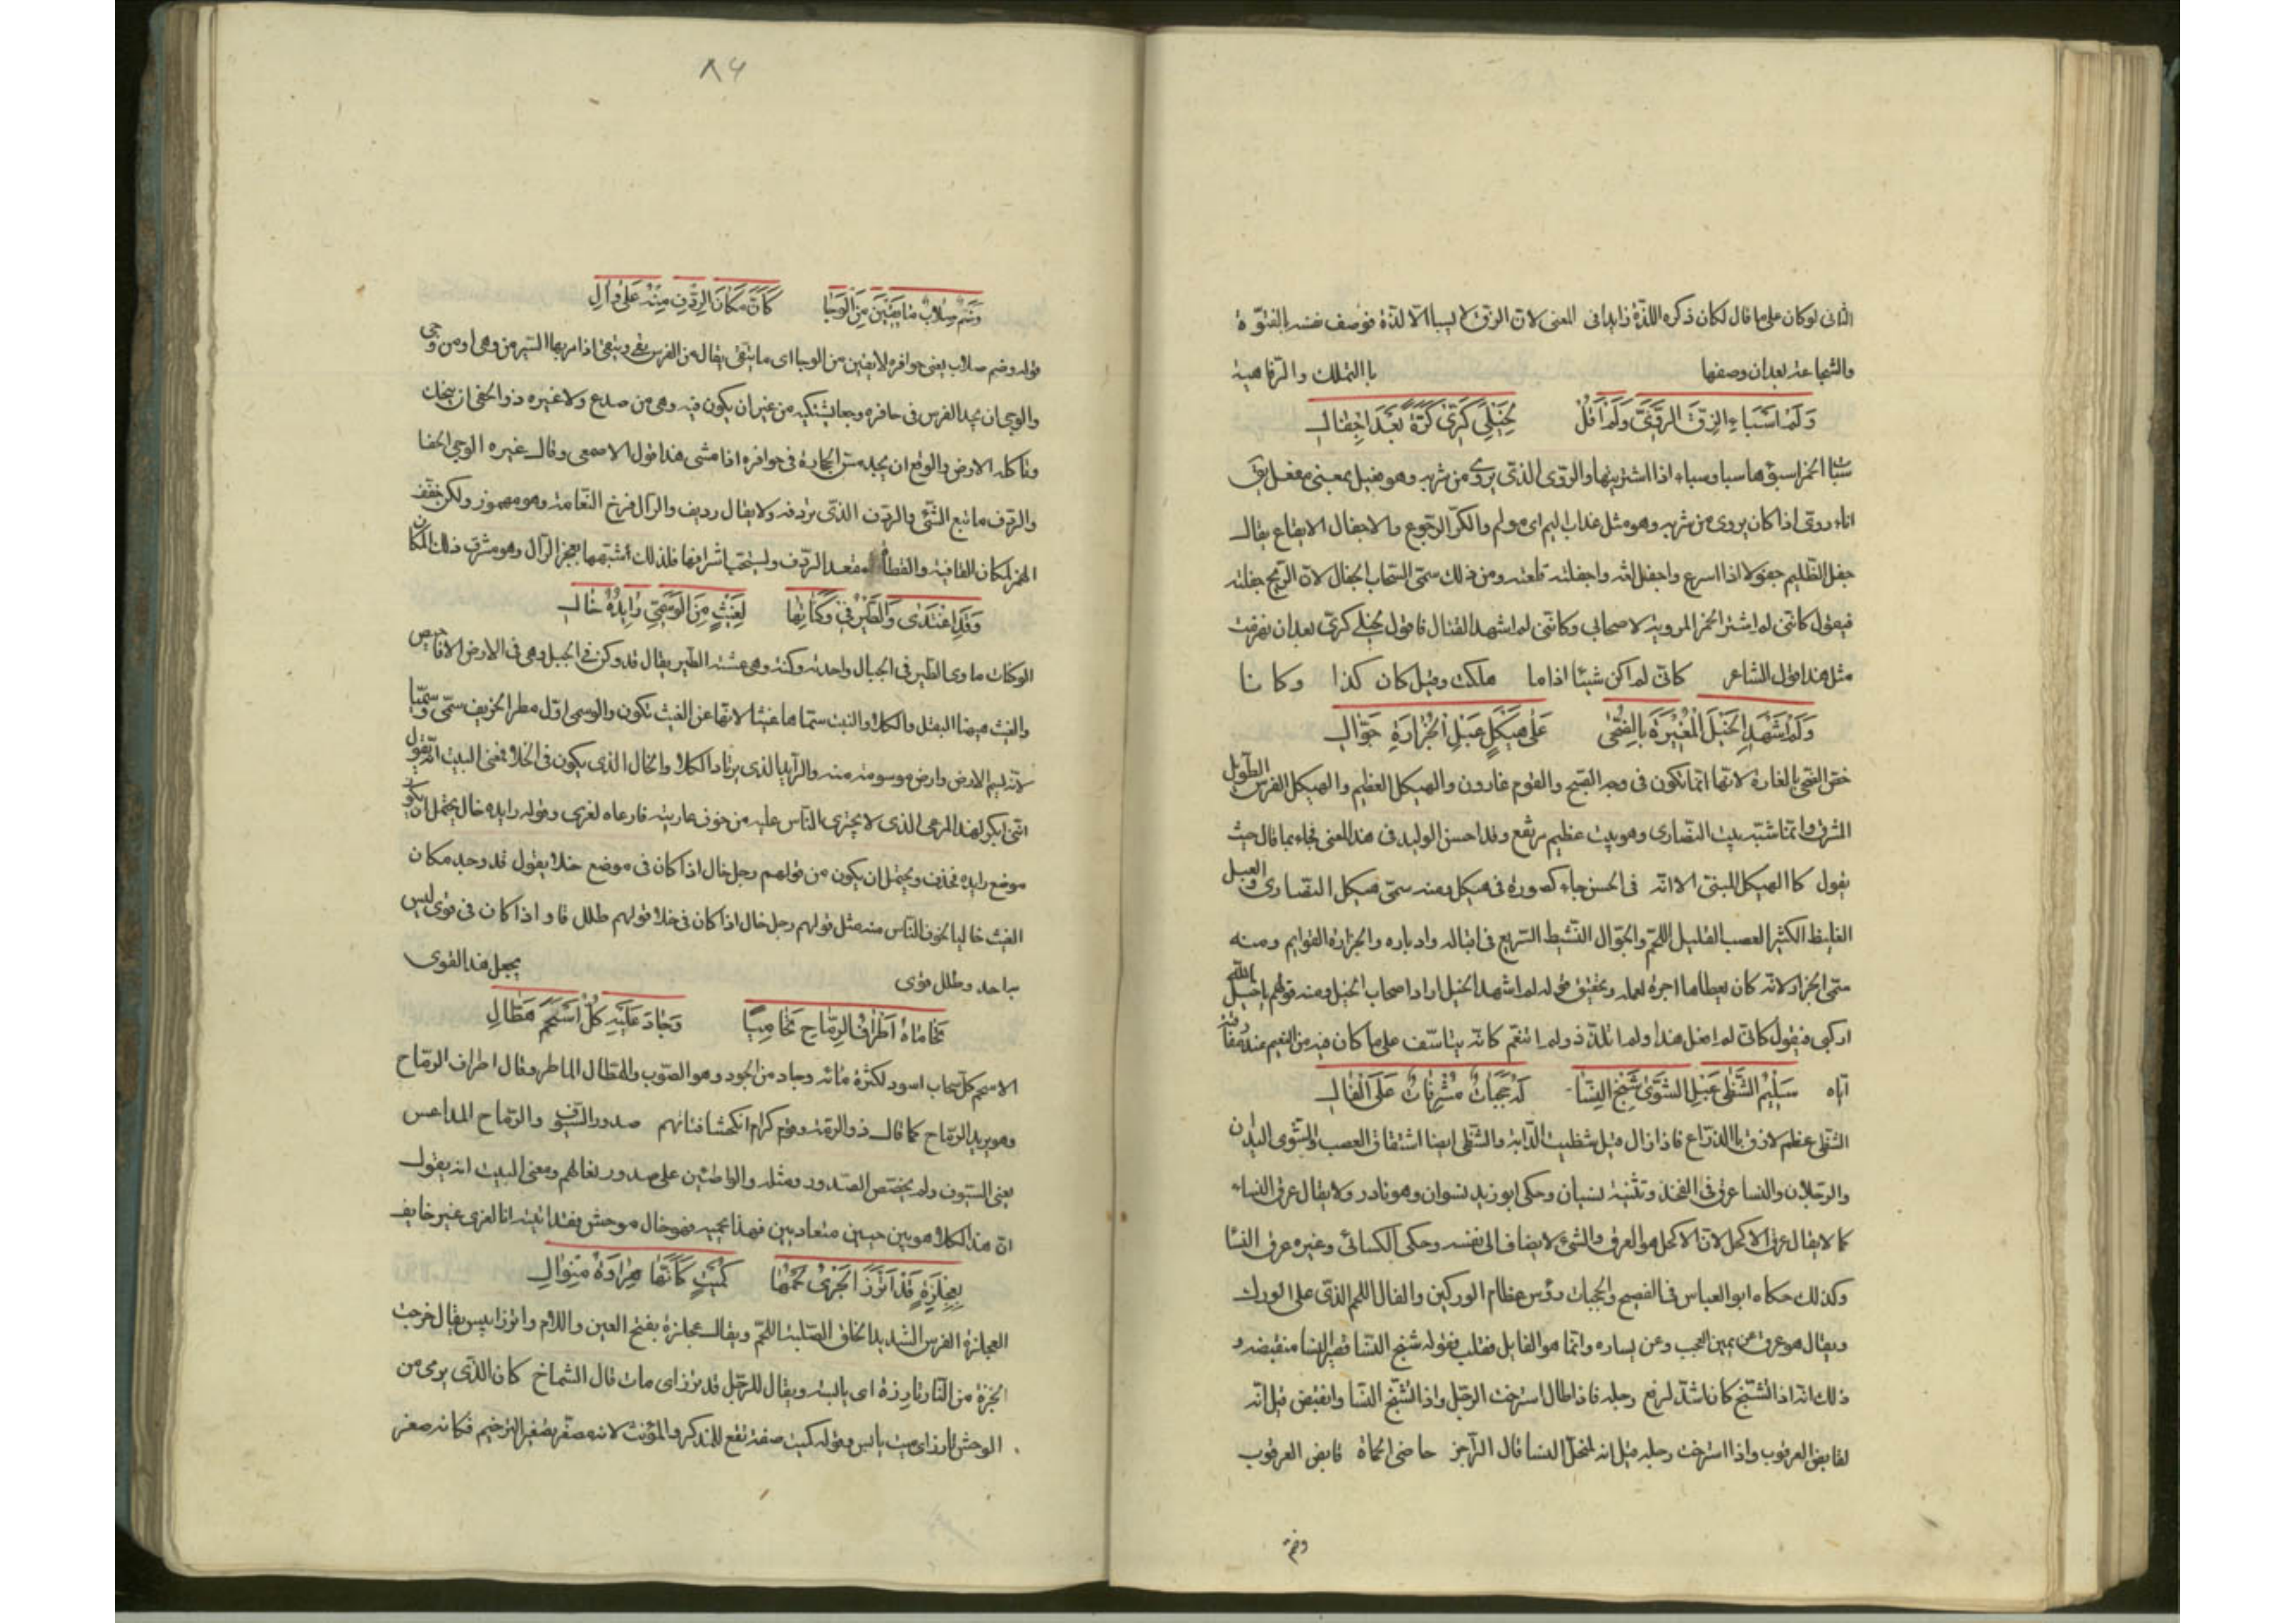 الثانى لوكان على ما قال لكان ذكره اللذة زايدا فى المعنى لان الزق لا يسبا الا للذة فوصف نفسه بالفتوّة
والشجاعة بعد ان وصفها باالتملك والرفاهية
وَلَم اَسْبَاءِ الزِقَّ الرَّوِيَّ وَلَم اَقُلْ لِخَيْلِي كُرِّى كَرَّةً بَعْدَ اِجْفَالِ
سبأ الخمر اسبؤها سبا وسباء اذا اشتريتها والروى الذى يروى من شربه وهو فعيل بمعنى مفعل
اناء روى اذا كان يروى من شربه وهو مثل عذاب اليم اى مولم والكرّ الرجوع والاجفال الانقلاع يقال
جفل الظليم جفولا اذا اسرع واجفل انه واجفلته قلعته ومن ذلك سمى السحاب الجفال لان الريح جفلته
فيقول كانّى لم اشتر الخمر المروية لاصحابى وكانّى لم اشهد القتال فاقول لخيلى كرّى بعد ان تفرقت
مثل هذا قول الشاعر كانى لم اكن شيئا اذا ما ملكت وقيل كان كذا وكانا
وَلَم اَشْهَدِ الخَيْلَ الْمُغِيرَةَ بِالضُّحٰى عَلٰى هَيْكَلٍ عَبْلِ الْجُزَارَةِ جَوَّالِ
خصّ الضحى بالغارة لانها انما تكون فى وجه الصبح والقوم غارون والهيكل العظيم والهيكل الفرس الطويل
المشرف وانما شبّه ببيت النصارى وهو بيت عظيم مرتفع وقد احسن الوليد فى هذا المعنى فجاء بما قال حيث
يقول كاالهيكل المبنى الا انه فى الحسن جاء كصورة فى هيكل وبعنه سمى هيكل النصارى والعبل
الغليظ الكثير العصب القليل اللحم والجوال النشيط السريع فى اقباله وادباره والجزارة القوايم ومنه
سمى الجزار لانه كان يعطاها اجرة لعمله وتحقيق قوله لم اشهد الخيل اراد اصحاب الخيل ومنه قولهم ياخيل الله
اركبى فيقول كانى لم افعل هذا ولم اتلذذ ولم اتنعم كانه يتاسف على ما كان فيه من النعيم عند مفارقته
اياه سَلِيمِ الشَّظٰى عَبْلِ الشَّوٰى شَنِجِ النَسَا لَهُ حَجَبَاتٌ مُشْرِفَاتٌ عَلَى الْفَالِ
الشظى عظم لازق باالذراع فاذا زال قيل شظيت الدابة والشظى ايضا اشتقاق العصب والشوى اليدان
والرجلان والنسا عرق فى الفخذ وتثنيته نسيان وحكى ابو زيد نسوان وهو نادر ولا يقال عرق النساء
كما لا يقال عرق الاكحل لان الاكحل هو العرق والشئ لا يضاف الى نفسه وحكى الكسائى وغيره عرق النسا
وكذلك حكاه ابو العباس فى الفصيح والحجبات رؤس عظام الوركين والفال اللحم الذى على الورك
ويقال هو عرق عن يمين العجب وعن يساره وانما هو الفايل فقلب فقوله شنج النسا قصير النسا منقبضه و
ذلك انه اذا تشنج كان اشد لرفع رجليه فاذا طال استرخت الرجل واذا تشنج النسا وانقبض قيل انه
لقابض العرقوب واذا استرخت رجليه قيل انه لمنحل النسا قال الراجز حامى الحماة قابض العرقوب
وصم
٨٤
وَصُمٍّ صِلَابٍ مَا يَقِينَ مِنَ الْوَجَا كَاَنَّ مَكَانَ الرِدْفِ مِنْهُ عَلٰى رَالِ
قوله وصم صلاب يعنى حوافره لا يقين من الوجا اى ما يتقى يقال من الفرس يقى ويتقى اذا مر بها السير من وهى او من وجى
والوجى ان يجد الفرس فى حافره وجعا يشتكيه من غير ان يكون فيه وهى من صدع ولا غيره ذو الحفى ان ينحك
وتاكله الارض والوقع ان يجد مسّ الحجارة فى حوافره اذا مشى هذا قول الاصمعى وقال غيره الوجى الحفا
والردف ما تبع الشئ والردف الذى تردفه ولا يقال رديف والرال فرخ النعامة وهو مهموز ولكن خفف
الهمز لمكان القافية والقطاة مقعد الردف ويستحب اشرافها فلذلك أشبهها بعجز الرال وهو مشرف ذلك المكان
وَقَد اَغْتَدٰى وَالطَّيْرُ فِي وُكُنَاتِهَا لِغَيْثٍ مِنَ الْوَسْمِيِّ رَايِدُهُ خَالِ
الوكنات ماوى الطير فى الجبال واحدته وكنة وهى عشة الطير يقال قد وكن فى الجبل وهى فى الارض الافاحيص
والغيث هيهنا البقل والكلا والنبت سماها غيثا لانها عن الغيث تكون والوسمى اول مطر الخريف سمى وسميّا
لانه يسم الارض وارض موسومة منه والرايد الذى يرتاد الكلا والخال الذى يكون فى الخلا فمعنى البيت انه يقول
انى ابكر لهذا المرعى الذى لا يجترى الناس عليه من خوف عاريته فارعاه لعزى وقوله رايده خال يحتمل ان يكون
موضع رايده فحذف ويحتمل ان يكون من قولهم رجل خال اذا كان فى موضع خلا يقول قد وجد مكان
الغيث خاليا لخوف الناس منه مثل قولهم رجل خال اذا كان فى خلا قولهم طلل قاو اذا كان فى قوى ليس
بواحد وطلل قوى يجعل هذا القوى
تَحَامَاهُ اَطْرَافُ الرِمَّاحِ تَحَامِيًا وَجَادَ عَلَيْهِ كُلُّ اَسْحَمَ هَطَّالِ
الاسحم كل سحاب اسود لكثرة مائه وجاد من الجود وهو الصوب والهطال الماطر وقال اطراف الرماح
وهو يريد الرماح كما قال ذو الرمة وقوم كرام انكحتنا فتاتهم صدور السيوف والرماح المداعس
يعنى السيوف ولم يخصّص الصدور ومثله والواطئين على صدور نعالهم ومعنى البيت انه يقول
ان هذا الكلاء هو بين حيين متعاديين فهذا يحميه فهو خال موحش فقد اتيته انا لعزى غير خايف
بِعِجْلِزَةٍ قَدْ اَتْرَزَ الْجَرْىُ لَحْمَهَا كُمَيْتٍ كَاَنَّهَا هِرَاوَةُ مِنْوَالِ
العجلزة الفرس الشديد الخلق الصلبة اللحم ويقال عجلزة بفتح العين واللام واترز ايبس يقال خرجت
الخبزة من النار تارزة اى يابسة ويقال للرجل قد ترز اى مات قال الشماخ كان الذى يرمى من
الوحش تارز اى ميت يابس وقوله كميت صفة تقع للمذكر والمؤنث لانه مصغر تصغير الترخيم فكانه صغر